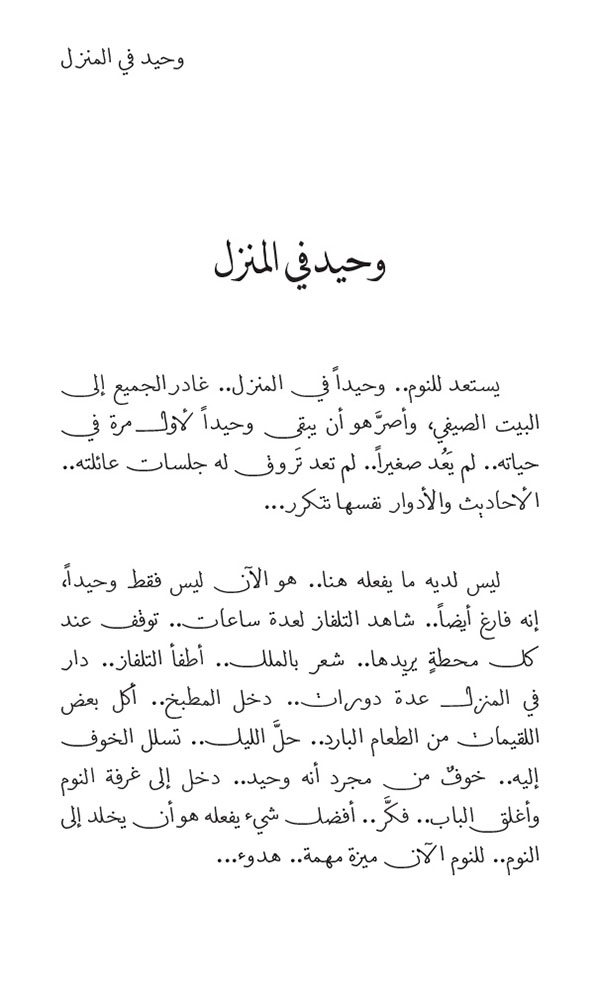 وحيد في المنزل
وحيد في المنزل
يستعد للنوم.. وحيداً في المنزل.. غادر الجميع إلى
البيت الصيفي، وأصرَّ هو أن يبقى وحيداً لأول مرة في
حياته.. لم يَعُد صغيراً.. لم تعد تَروق له جلسات عائلته..
الأحاديث والأدوار نفسها تتكرر...
ليس لديه ما يفعله هنا.. هو الآن ليس فقط وحيداً،
إنه فارغ أيضاً.. شاهد التلفاز لعدة ساعات.. توقف عند
كل محطةٍ يريدها.. شعر بالملل.. أطفأ التلفاز.. دار
في المنزل عدة دورات.. دخل المطبخ.. أكل بعض
اللقيمات من الطعام البارد.. حلَّ الليل.. تسلل الخوف
إليه.. خوفٌ من مجرد أنه وحيد.. دخل إلى غرفة النوم
وأغلق الباب.. فكَّر.. أفضل شيء يفعله هو أن يخلد إلى
النوم.. للنوم الآن ميزة مهمة.. هدوء...